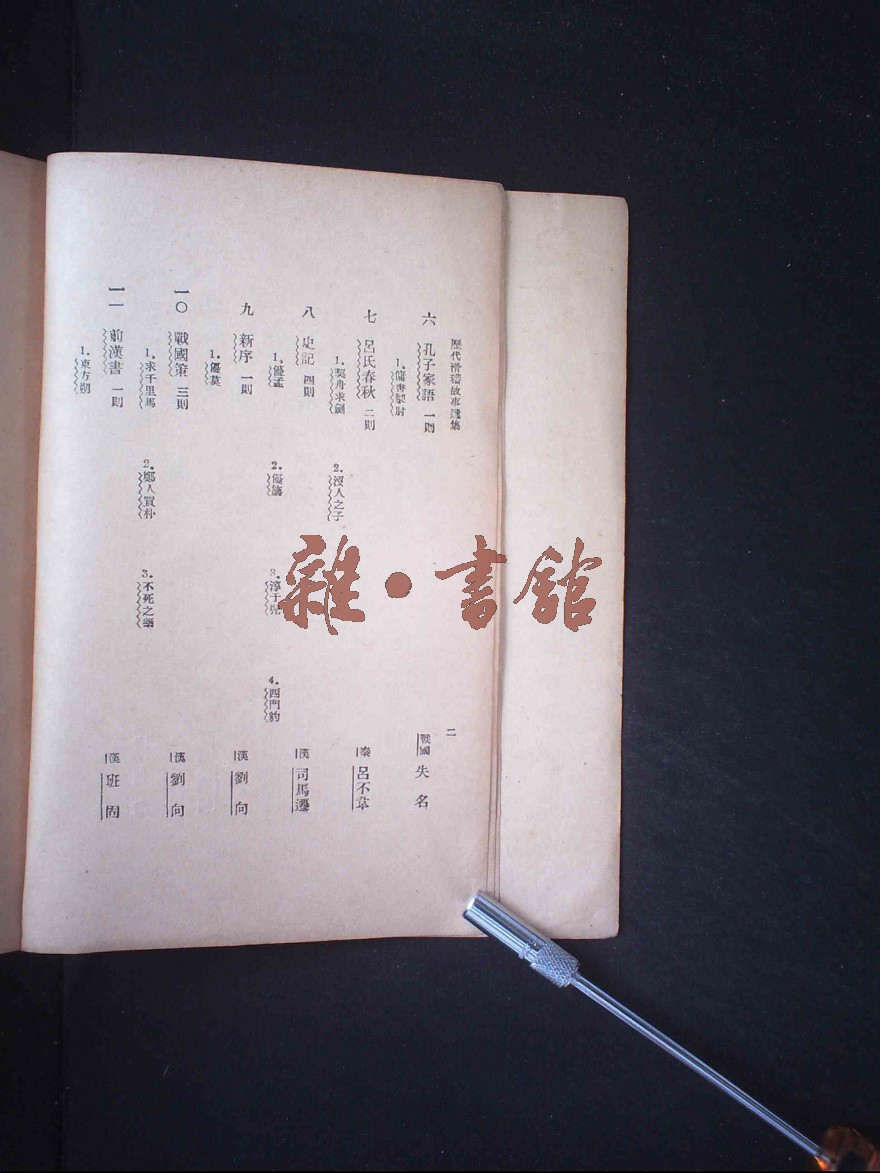 歷代滑稽故事選集
二
六 孔子家語 一則 戰國 失名
七 呂氏春秋 二則 秦 呂不韋
1. 契舟求劍 2. 沒人之子
八 史記 四則 漢 司馬遷
1. 優孟 2. 優旃 3. 淳于髡 4. 西門豹
九 新序 一則 漢 劉向
1. 優莫
一〇 戰國策 三則 漢 劉向
1. 求千里馬 2. 鄭人買朴 3. 不死之藥
一一 前漢書 一則 漢 班固
1. 東方朔
雜·書館